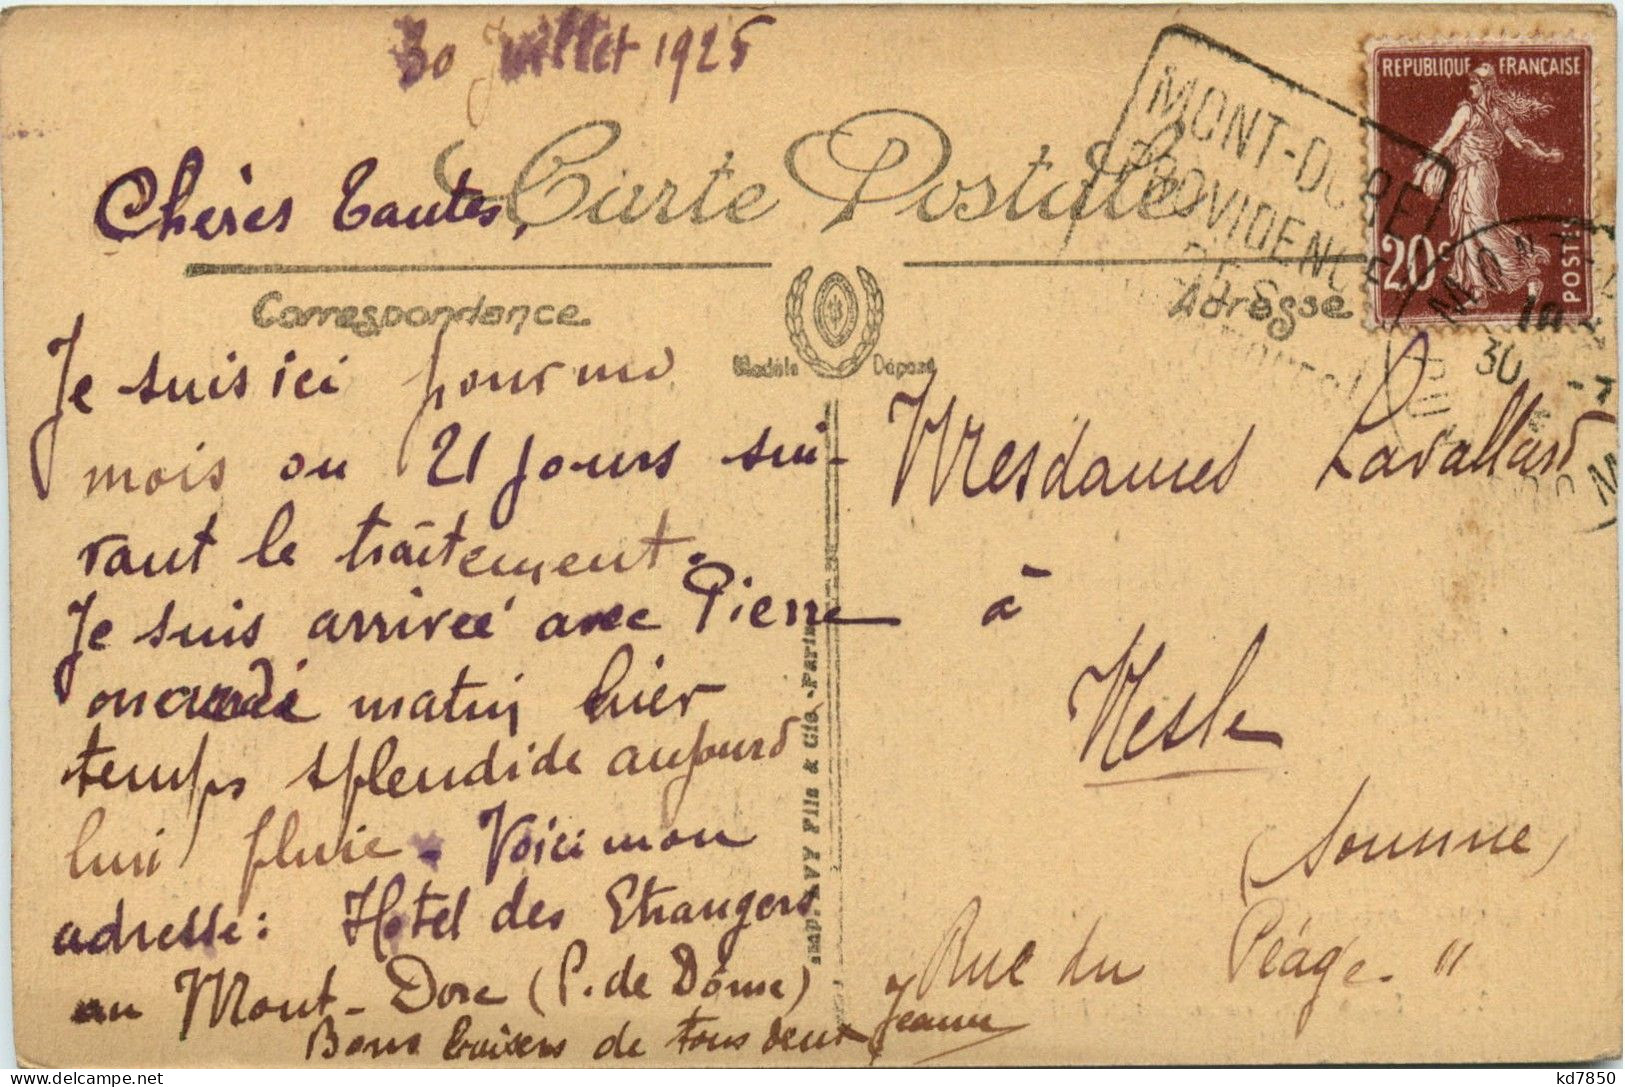 30 Juillet 1925
Carte Postale
MONT-DORE
PROVIDENCE
DES
REPUBLIQUE FRANÇAISE
20c
POSTES
30
Chères Tantes,
Correspondance
Adresse
Modèle Déposé
Je suis ici pour un
mois ou 21 jours sui-
vant le traitement.
Je suis arrivée avec Pierre
mercredi matin hier
temps splendide aujourd
hui pluie. Voici mon
adresse: Hotel des Etrangers
au Mont-Dore (P. de Dôme)
Bons baisers de tous deux Jeanne
Imp. LEVY Fils & Cie - Paris
Mesdames Lavallard
à
Nesle
(Somme)
Rue du Péage "
kd7850